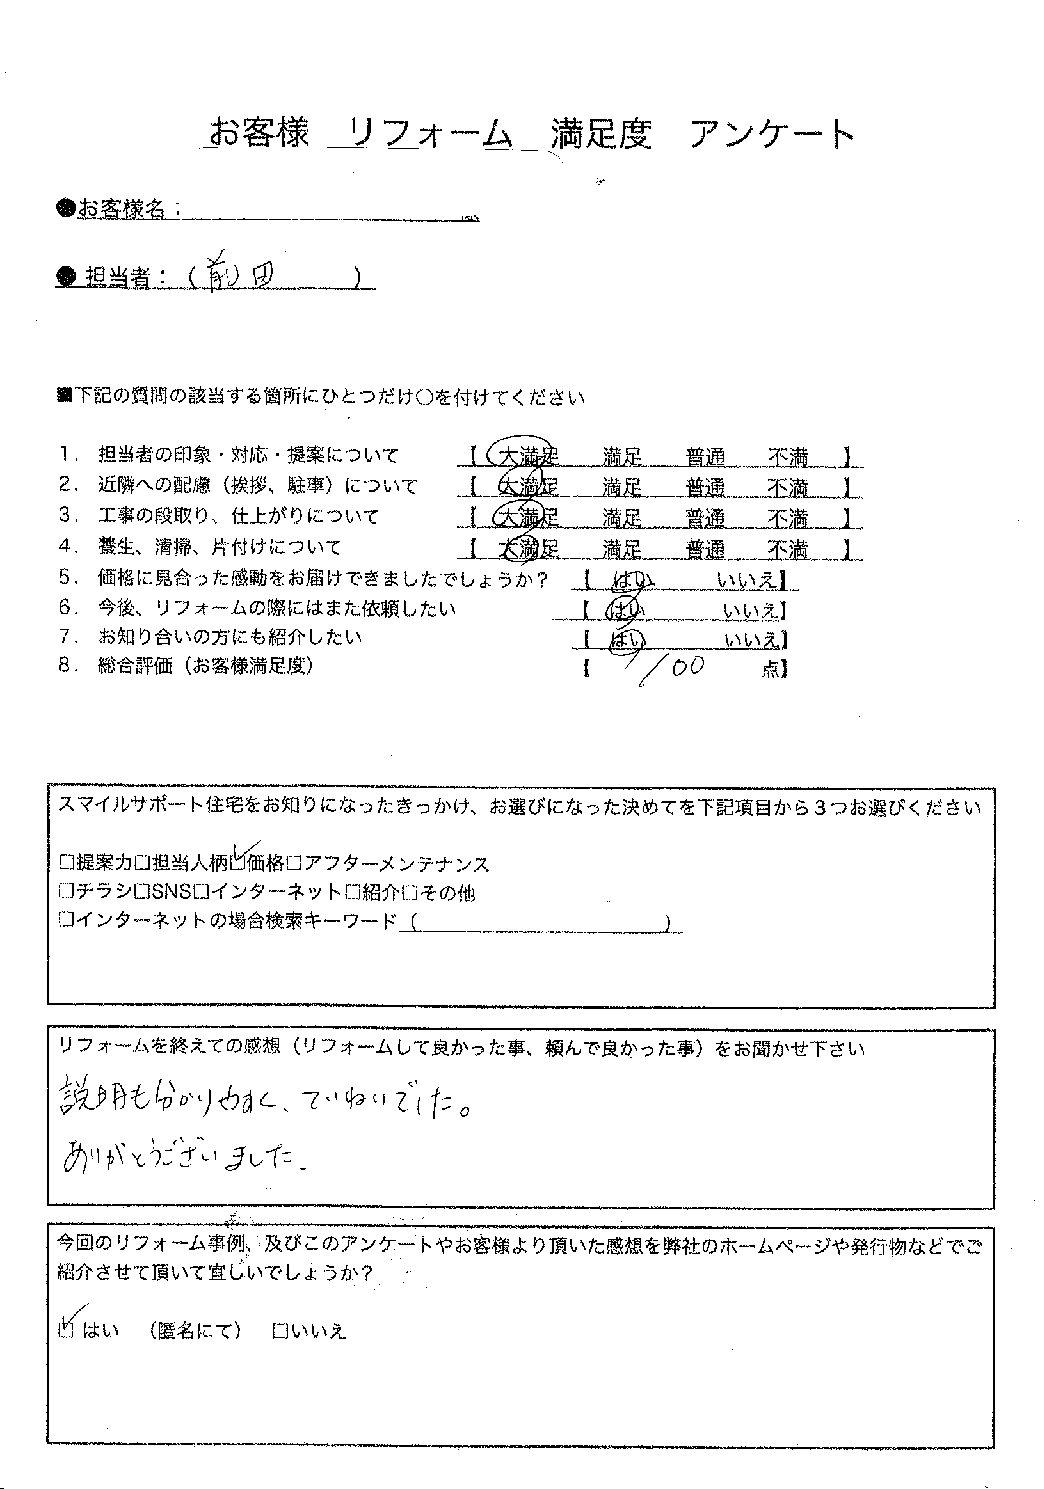 お客様 リフォーム 満足度 アンケート
●お客様名：
● 担当者：（前田 ）
■下記の質問の該当する箇所にひとつだけ○を付けてください
1． 担当者の印象・対応・提案について 【 大満足 満足 普通 不満 】
2． 近隣への配慮（挨拶、駐車）について 【 大満足 満足 普通 不満 】
3． 工事の段取り、仕上がりについて 【 大満足 満足 普通 不満 】
4． 養生、清掃、片付けについて 【 大満足 満足 普通 不満 】
5． 価格に見合った感動をお届けできましたでしょうか？ 【 はい いいえ】
6． 今後、リフォームの際にはまた依頼したい 【 はい いいえ】
7． お知り合いの方にも紹介したい 【 はい いいえ】
8． 総合評価（お客様満足度） 【 100 点】
スマイルサポート住宅をお知りになったきっかけ、お選びになった決めてを下記項目から３つお選びください
□提案力□担当人柄☑価格□アフターメンテナンス
□チラシ□SNS□インターネット□紹介□その他
□インターネットの場合検索キーワード（ ）
リフォームを終えての感想（リフォームして良かった事、頼んで良かった事）をお聞かせ下さい
説明も分かりやすく、ていねいでした。
ありがとうございました.
今回のリフォーム事例、及びこのアンケートやお客様より頂いた感想を弊社のホームページや発行物などでご
紹介させて頂いて宜しいでしょうか？
☑はい （匿名にて） □いいえ